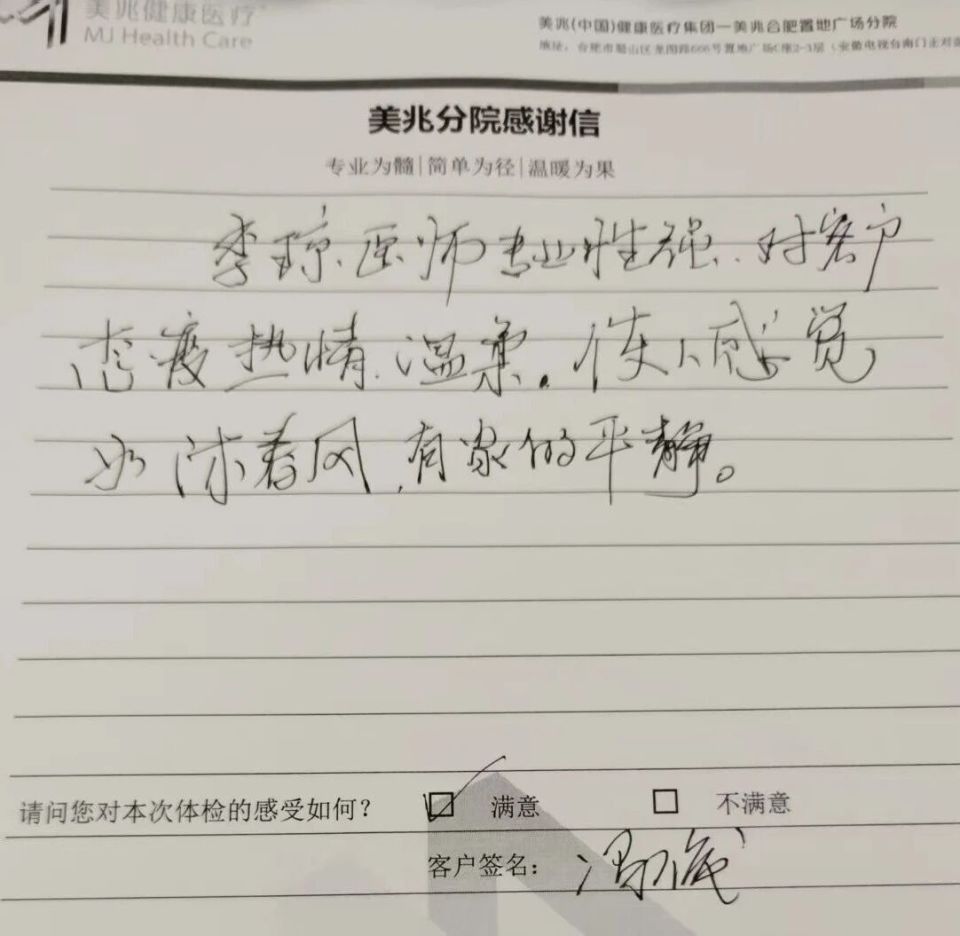 美兆健康医疗
MJ Health Care
美兆(中国)健康医疗集团—美兆合肥置地广场分院
地址：合肥市蜀山区龙图路666号置地广场C座2-3层（安徽电视台南门正对面
美兆分院感谢信
专业为髓|简单为径|温暖为果
李琼医师专业性强，对客户
态度热情温柔，使人感觉
如沐春风，有家的平静。
请问您对本次体检的感受如何？ 满意 不满意
客户签名：